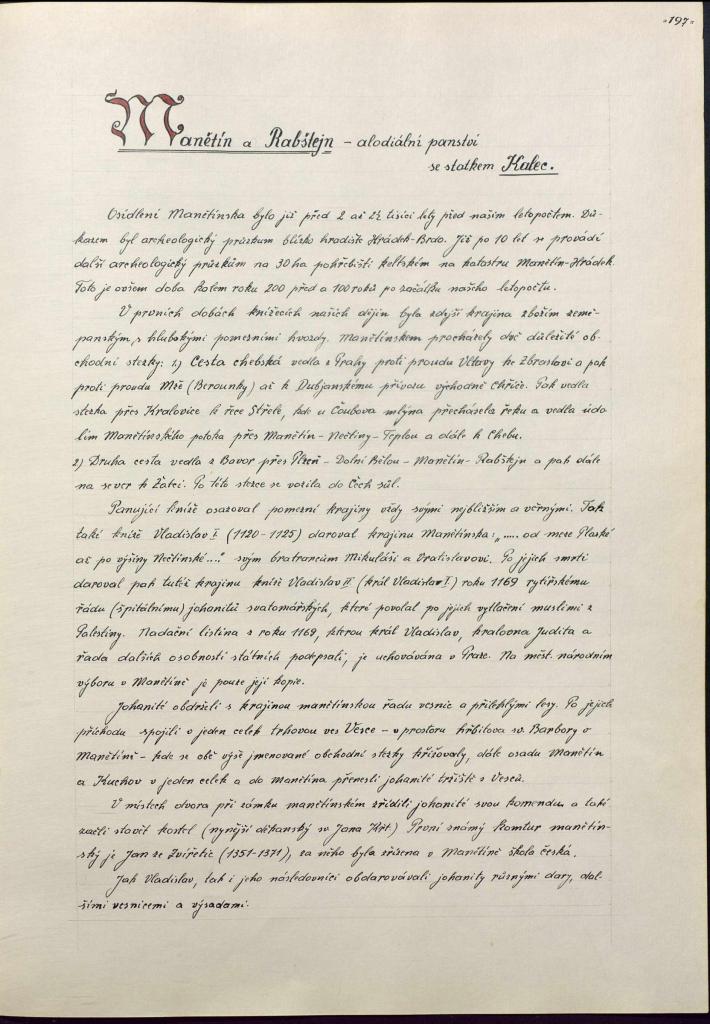 "197"
Manětín a Rabštejn – alodiální panství
se statkem Kalec.
Osídlení Manětínska bylo již před 2 až 2½ tisíci lety před naším letopočtem. Dů-
kazem byl archeologický průzkum blízko hradiště Hrádek-Brdo. Již po 10 let se provádí
další archeologický průzkum na 30 ha pohřebišti keltském na katastru Manětín-Hrádek.
Toto je ovšem doba kolem roku 200 před a 100 roků po začátku našeho letopočtu.
V prvních dobách knížecích našich dějin byla zdejší krajina zbožím země-
panským s hlubokými pomezními hvozdy. Manětínskem procházely dvě důležité ob-
chodní stezky: 1.) Cesta chebská vedla z Prahy proti proudu Vltavy ke Zbraslavi a pak
proti proudu Mže (Berounky) až k Dubjanskému přívozu východně Chříče. Pak vedla
stezka přes Kralovice k řece Střele, kde u Čoubova mlýna přecházela řeku a vedla údo
lím Manětínského potoka přes Manětín – Nečtiny – Teplou a dále k Chebu.
2) Druhá cesta vedla z Bavor přes Plzeň – Dolní Bělou – Manětín – Rabštejn a pak dále
na sever k Žatci. Po této stezce se vozila do Čech sůl.
Panující kníže osazoval pomezní krajiny vždy svými nejbližším a věrnými. Tak
také kníže Vladislav I (1120 – 1125) daroval krajinu Manětínska: „..... od meze Plaské
až po výšiny Nečtinské ...." svým bratrancům Mikuláši a Vratislavovi. Po jejich smrti
daroval pak tutéž krajinu kníže Vladislav II (král Vladislav I) roku 1169 rytířskému
řádu (špitálnímu) johanitů svatomářských, které povolal po jejich vytlačení muslimi z
Palestiny. Nadační listina z roku 1169, kterou král Vladislav, královna Judita a
řada dalších osobností státních podepsali, je uchovávána v Praze. Na měst. národním
výboru v Manětíně je pouze její kopie.
Johanité obdrželi s krajinou manětínskou řadu vesnic a přilehlými lesy. Po jejich
příchodu spojili v jeden celek trhovou ves Vesce – v prostoru hřbitova sv. Barbory v
Manětíně – kde se obě výše jmenované obchodní stezky křižovaly, dále osadu Manětín
a Kuchov v jeden celek a do Manětína přenesli johanité tržiště s Vesců.
V místech dvora při zámku manětínském zřídili johanité svou komendu a také
začli stavět kostel (nynější děkanský sv Jana Křt.) První známý komtur manětín-
ský je Jan ze Zvířetic (1351-1371), za něho byla zřízena v Manětíně škola česká.
Jak Vladislav, tak i jeho následovníci obdarovávali johanity různými dary, dal-
šími vesnicemi a výsadami.